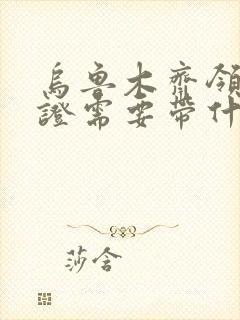 烏魯木齊領
證需要帶什
莎含